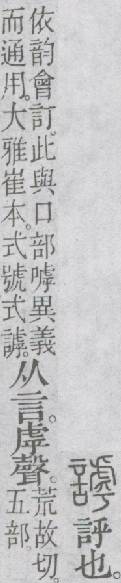 謼 評也。
依韵會訂。此與口部嘑異義
而通用。大雅崔本。式號式謼。
从言。虖聲。
荒故切。
五部。